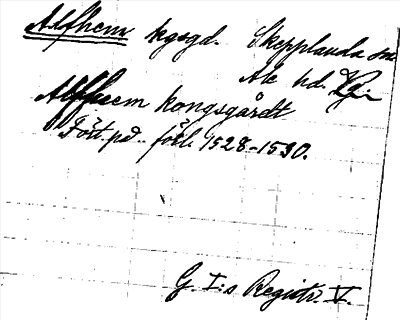 Alfhem kgsgd. Skepplanda sn
Ale hd. Vg.
Alfhem kongsgårdt
Fört. på förl. 1528-1530.
G. I:s Registr. V.